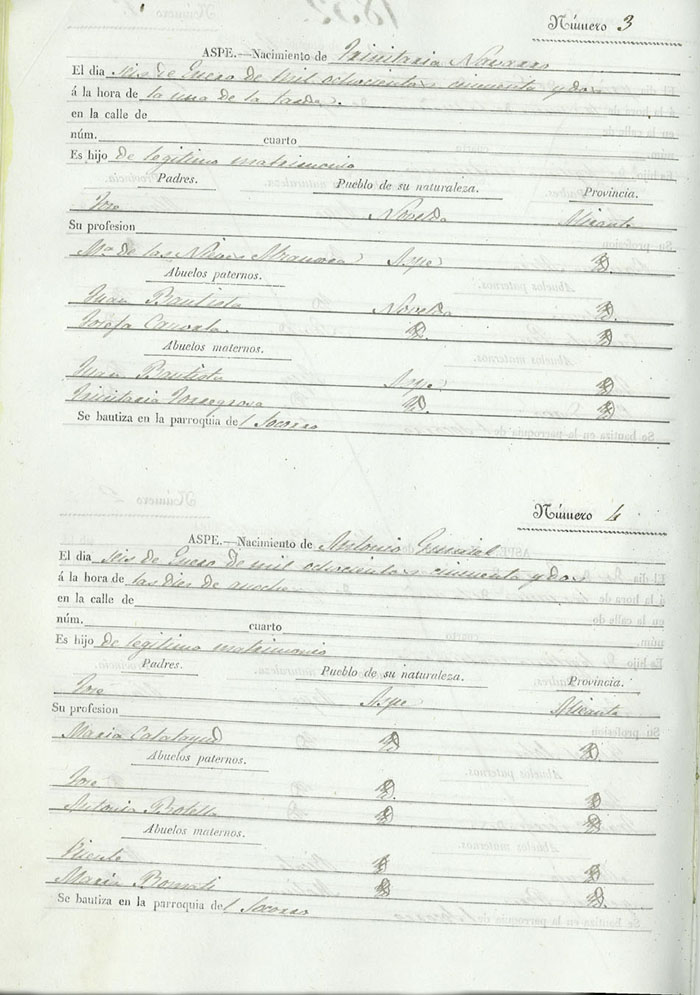 Número 3
ASPE.—Nacimiento de Trinitaria Navarro
El dia seis de Enero de mil ochocientos cincuenta y dos
á la hora de la una de la tarde.
en la calle de
núm. cuarto
Es hijo de legitimo matrimonio
Padres. Pueblo de su naturaleza. Provincia.
José Novelda Alicante
Su profesion
Mª de las Nieves Aspe D.
Abuelos paternos.
Juan Bautista Novelda D.
Josefa D. D.
Abuelos maternos.
Juan Bautista Aspe D.
Trinitaria Torregrosa D. D.
Se bautiza en la parroquia del Socorro
Número 4
ASPE.—Nacimiento de Antonio
El dia seis de Enero de mil ochocientos cincuenta y dos
á la hora de las diez de anoche
en la calle de
núm. cuarto
Es hijo de legitimo matrimonio
Padres. Pueblo de su naturaleza. Provincia.
José Aspe Alicante
Su profesion
Maria Calatayud D. D.
Abuelos paternos.
José D. D.
Antonia Botella D. D.
Abuelos maternos.
Vicente D. D.
Maria D. D.
Se bautiza en la parroquia del Socorro